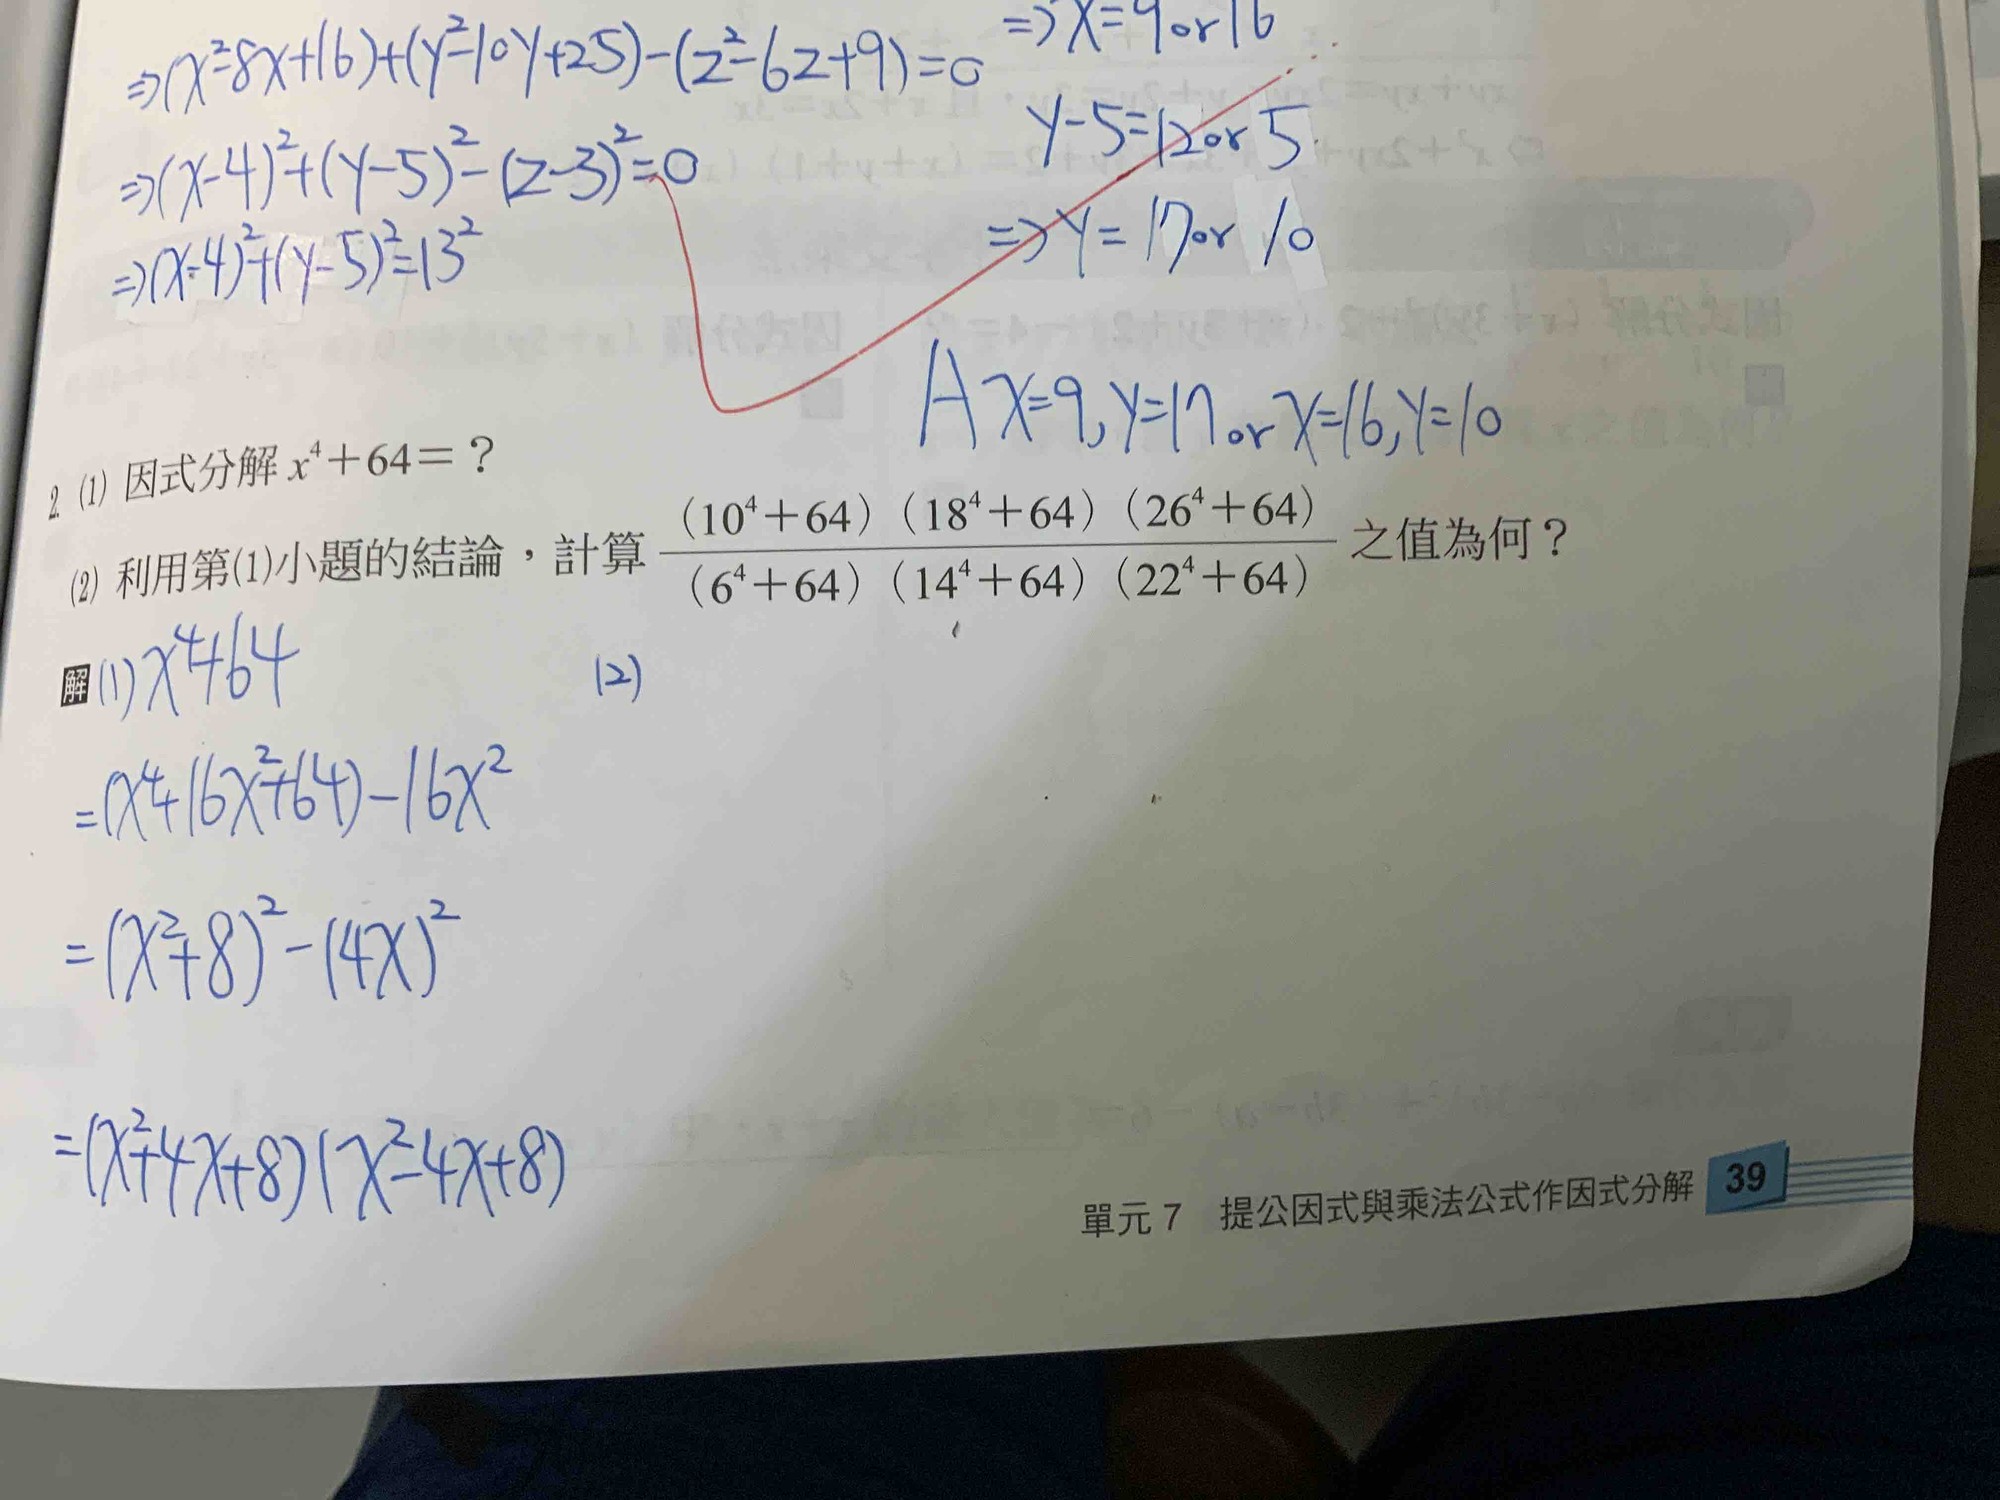 ⇒(x²-8x+16)+(y²-10y+25)-(z²-6z+9)=0
⇒(x-4)²+(y-5)²-(z-3)²=0
⇒(x-4)²+(y-5)²=13²
⇒x=9 or 16
y-5=12 or 5
⇒y=17 or 10
A x=9, y=17 or x=16, y=10
2. (1) 因式分解 x⁴+64=?
(2) 利用第(1)小題的結論,計算 (10⁴+64)(18⁴+64)(26⁴+64) / (6⁴+64)(14⁴+64)(22⁴+64) 之值為何?
解 (1) x⁴+64
=(x⁴+16x²+64)-16x²
=(x²+8)²-(4x)²
=(x²+4x+8)(x²-4x+8)
(2)
單元 7 提公因式與乘法公式作因式分解 39